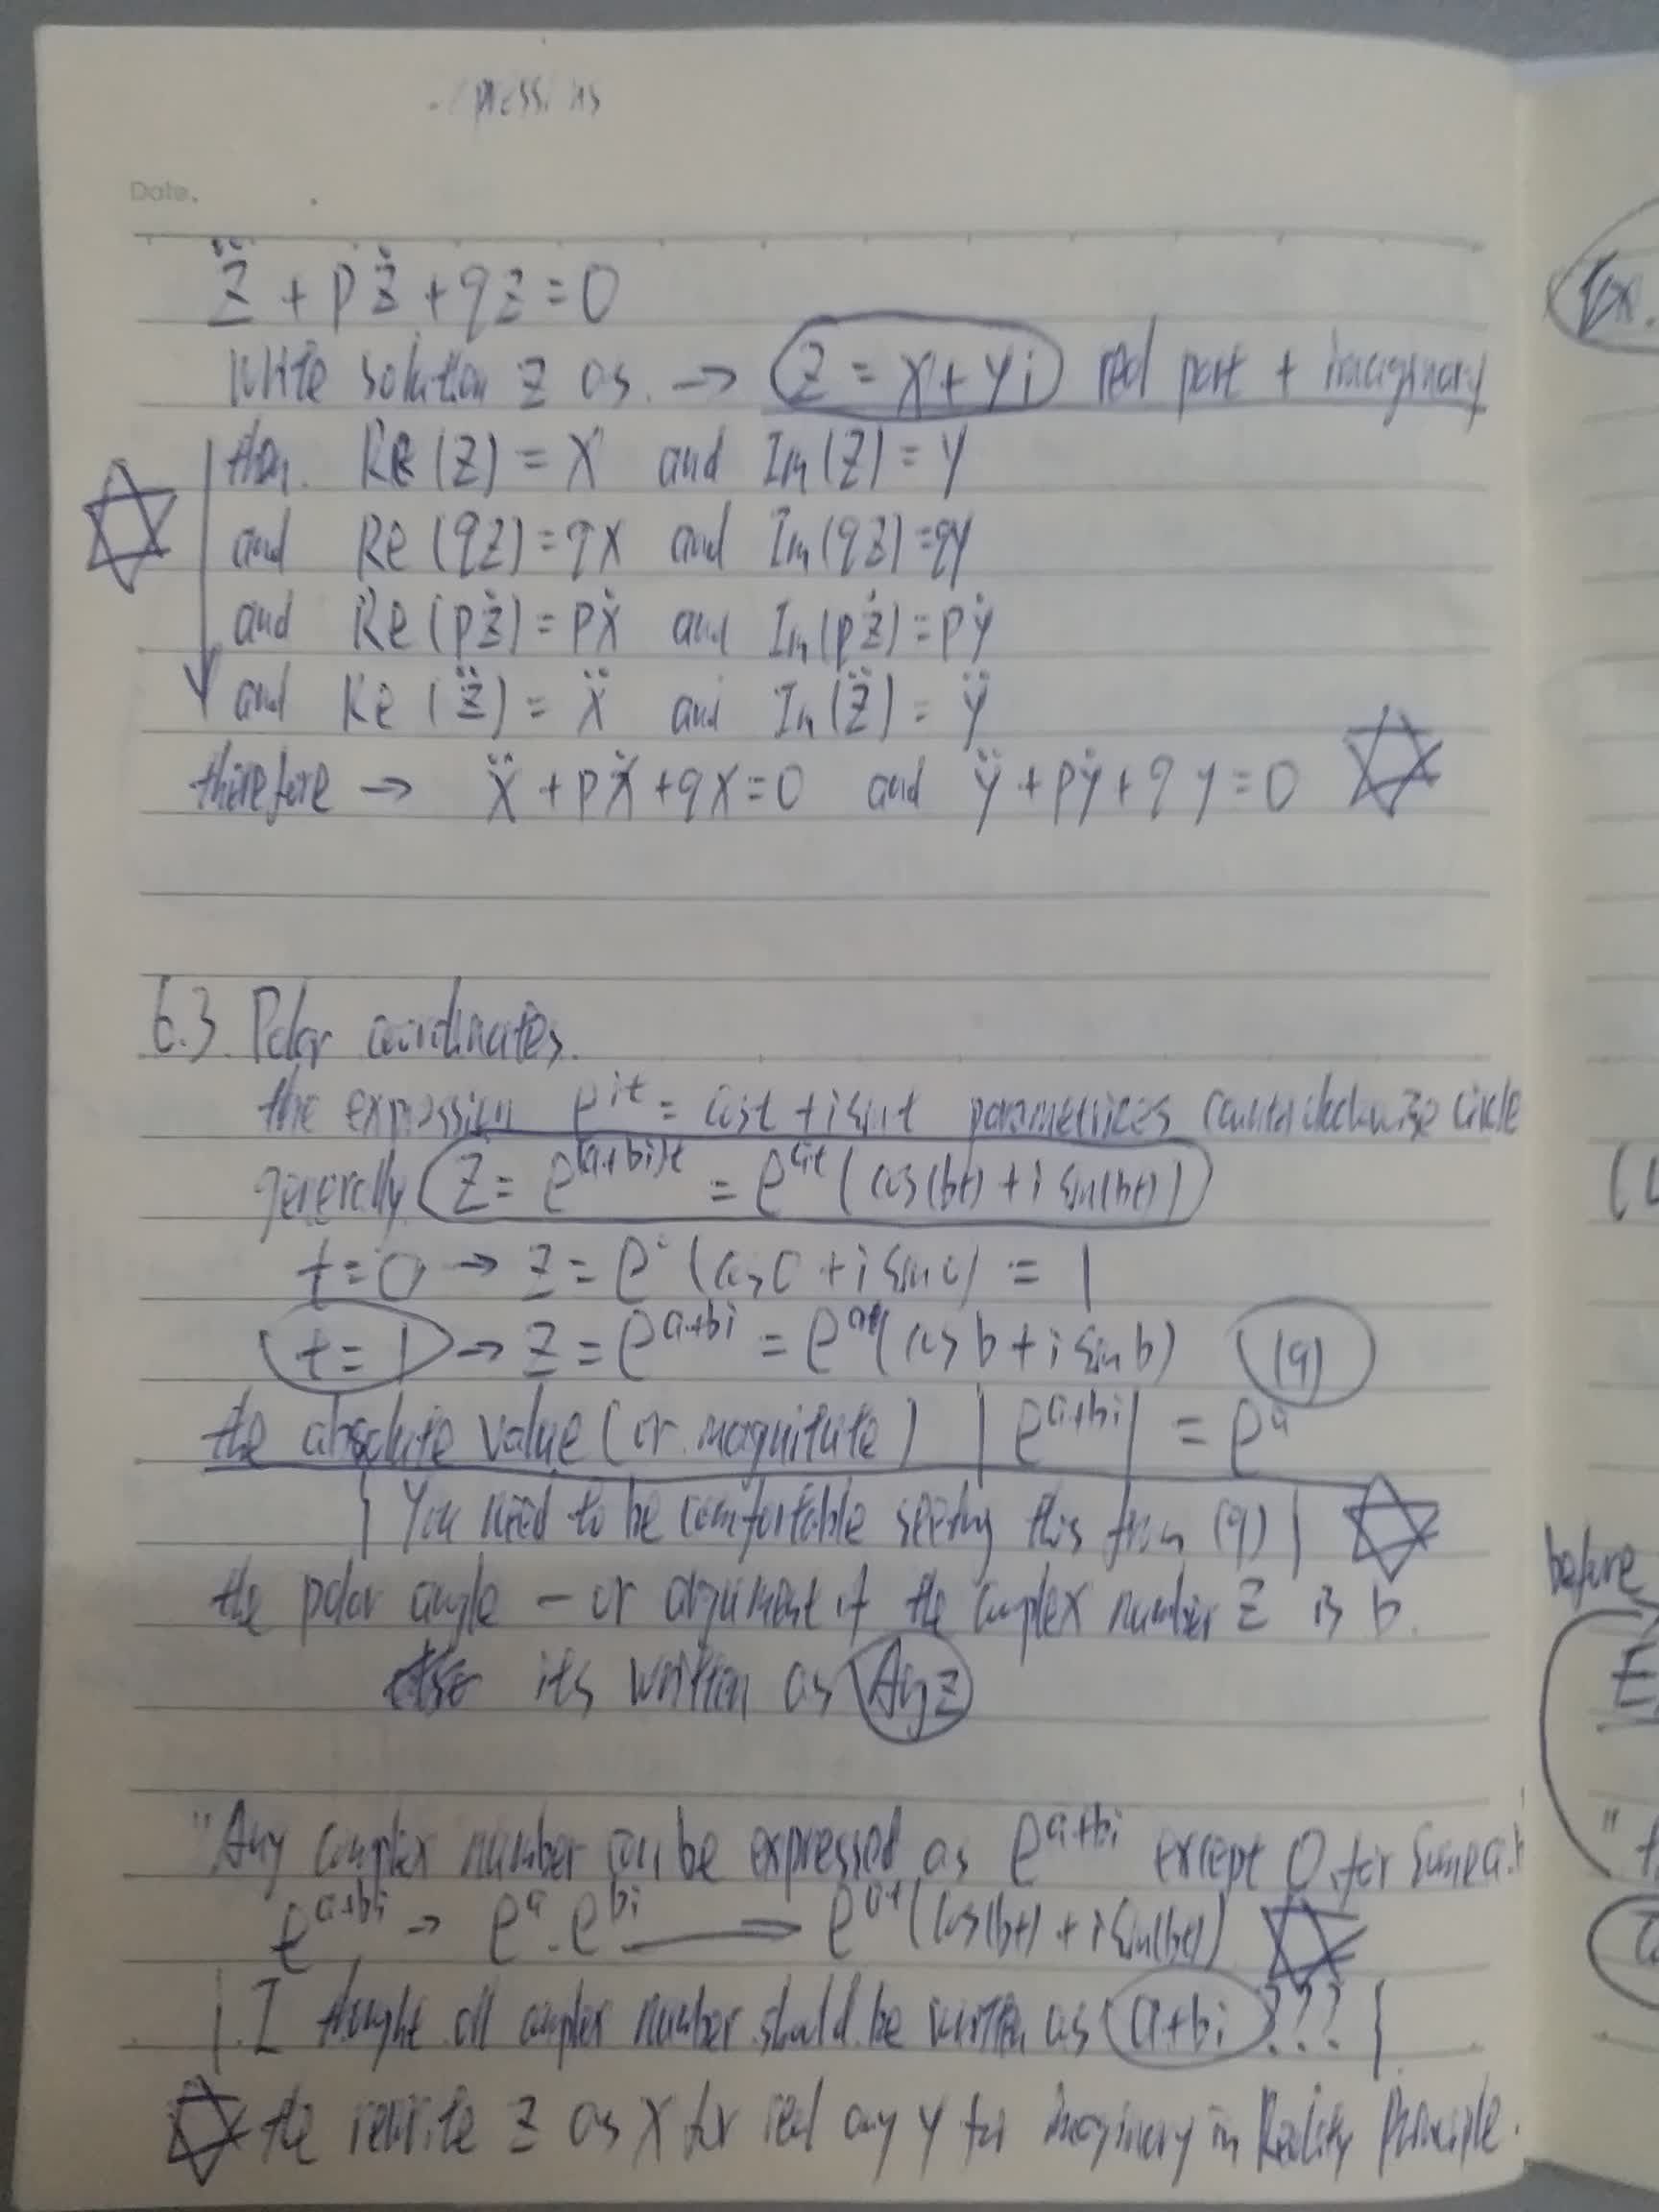 Date.
z̈ + pż + qz = 0
write solution z as. → z = x + yi real part + imaginary
then. Re(z) = x and Im(z) = y
and Re(qz) = qx and Im(qz) = qy
and Re(pż) = pẋ and Im(pż) = pẏ
and Re(z̈) = ẍ and Im(z̈) = ÿ
therefore → ẍ + pẋ + qx = 0 and ÿ + pẏ + qy = 0
6.3. Polar coordinates.
the expression e^{it} = cost + isint parametrices counterclockwise circle
generally z = e^{(a+bi)t} = e^{at}(cos(bt) + i sin(bt))
t = 0 → z = e^{0}(cos0 + i sin0) = 1
t = 1 → z = e^{a+bi} = e^{a}(cos b + i sin b) (9)
the absolute value (or magnitute) |e^{a+bi}| = e^{a}
{You need to be comfortable seeing this from (9)}
the polar angle - or argument of the complex number z is b.
its written as Arg z
"Any complex number can be expressed as e^{a+bi} except 0. for some a.
e^{a+bi} → e^{a}.e^{bi} e^{at}(cos(bt) + i sin(bt))
{I thought all complex number should be written as a+bi ???}
the rewrite z as x for real any y for imaginary in Reality Principle.
Ex.
before